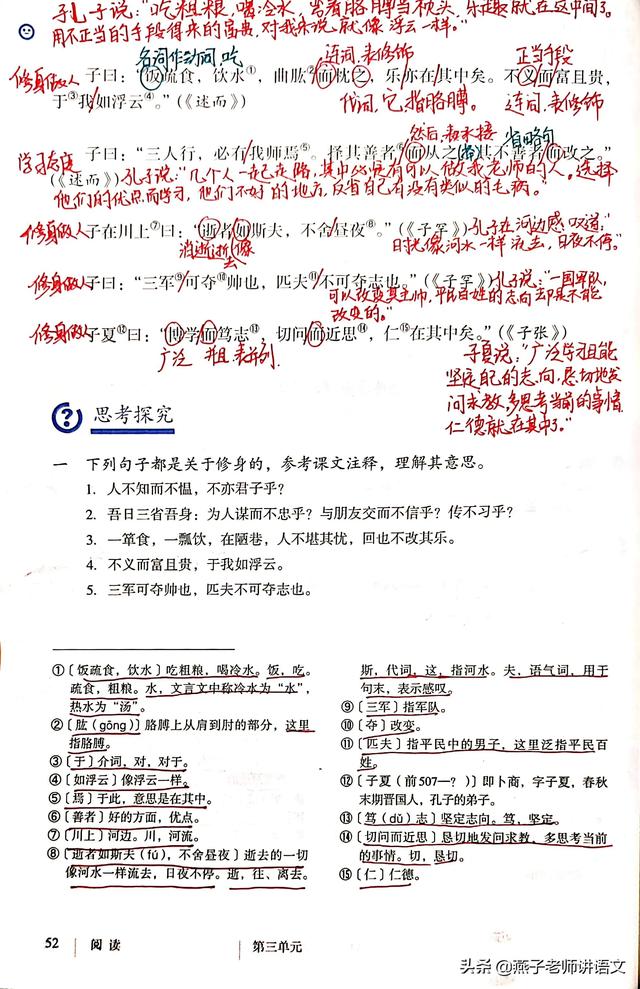 孔子说:"吃粗粮,喝冷水,弯着胳膊当枕头,乐趣就在这中间了。
用不正当的手段得来的富贵,对我来说就像浮云一样。"
名词作动词,吃
连词,表修饰
正当手段
修身做人
子曰:"饭疏食,饮水①,曲肱②而枕之,乐亦在其中矣。不义而富且贵,
于③我如浮云④。"(《述而》)
代词,它,指胳膊。
连词,表修饰
然后,表承接
省略句
学习态度
子曰:"三人行,必有我师焉⑤。择其善者⑥而从之,其不善者而改之。"
(《述而》)
孔子说:"几个人一起走路,其中必定有可以做我老师的人。选择
他们的优点而学习,他们不好的地方,反省自己有没有类似的毛病。"
修身做人
子在川上⑦曰:"逝者如斯夫,不舍昼夜⑧。"(《子罕》)
孔子在河边感叹道:
"时光像河水一样流去,日夜不停。"
消逝
像
修身做人
子曰:"三军⑨可夺⑩帅也,匹夫⑪不可夺志也。"(《子罕》)
孔子说:"一国军队,
可以改变其主帅,平民百姓的志向却是不能
改变的。"
修身做人
子夏⑫曰:"博学而笃志⑬,切问而近思⑭,仁⑮在其中矣。"(《子张》)
广泛
并且
表并列
子夏说:"广泛学习且能
坚定自己的志向,恳切地发
问求教,多思考当前的事情,
仁德就在其中了。"
思考探究
一 下列句子都是关于修身的,参考课文注释,理解其意思。
1. 人不知而不愠,不亦君子乎?
2. 吾日三省吾身:为人谋而不忠乎?与朋友交而不信乎?传不习乎?
3. 一箪食,一瓢饮,在陋巷,人不堪其忧,回也不改其乐。
4. 不义而富且贵,于我如浮云。
5. 三军可夺帅也,匹夫不可夺志也。
①〔饭疏食,饮水〕吃粗粮,喝冷水。饭,吃。
疏食,粗粮。水,文言文中称冷水为"水",
热水为"汤"。
②〔肱(gōng)〕胳膊上从肩到肘的部分,这里
指胳膊。
③〔于〕介词,对,对于。
④〔如浮云〕像浮云一样。
⑤〔焉〕于此,意思是在其中。
⑥〔善者〕好的方面,优点。
⑦〔川上〕河边。川,河流。
⑧〔逝者如斯夫(fú),不舍昼夜〕逝去的一切
像河水一样流去,日夜不停。逝,往、离去。
斯,代词,这,指河水。夫,语气词,用于
句末,表示感叹。
⑨〔三军〕指军队。
⑩〔夺〕改变。
⑪〔匹夫〕指平民中的男子,这里泛指平民百
姓。
⑫〔子夏(前507—?)〕即卜商,字子夏,春秋
末期晋国人,孔子的弟子。
⑬〔笃(dǔ)志〕坚定志向。笃,坚定。
⑭〔切问而近思〕恳切地发问求教,多思考当前
的事情。切,恳切。
⑮〔仁〕仁德。
52 阅读 第三单元
头条@燕子老师讲语文